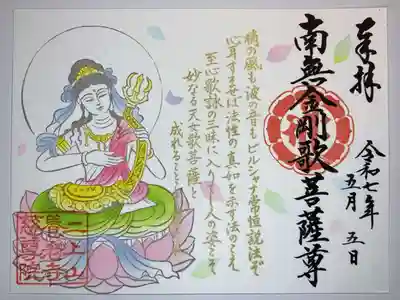 奉拝
令和七年
五月 五日
南無金剛歌菩薩尊
梢の風も波の音もビルシャナ常恒説法で
心耳すませば法性の真如を示す法のこえ
至心歌詠の三昧に入りし人の姿こそ
妙なる天女歌菩薩と
成れること
慈尊院